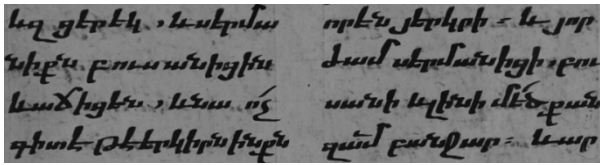 եւզ ցերեկ, եւսերմա
նիքն բուսանիցին
եւաճիցեն, եւնա ո՛չ
գիտէ թէերկիրն ինքն
որէն յերկրի ։ եւ յոր
ժամ սերմանիցի, բու
սանի ելինի մե՛ծ քան
զամ բանջար ։ եւար